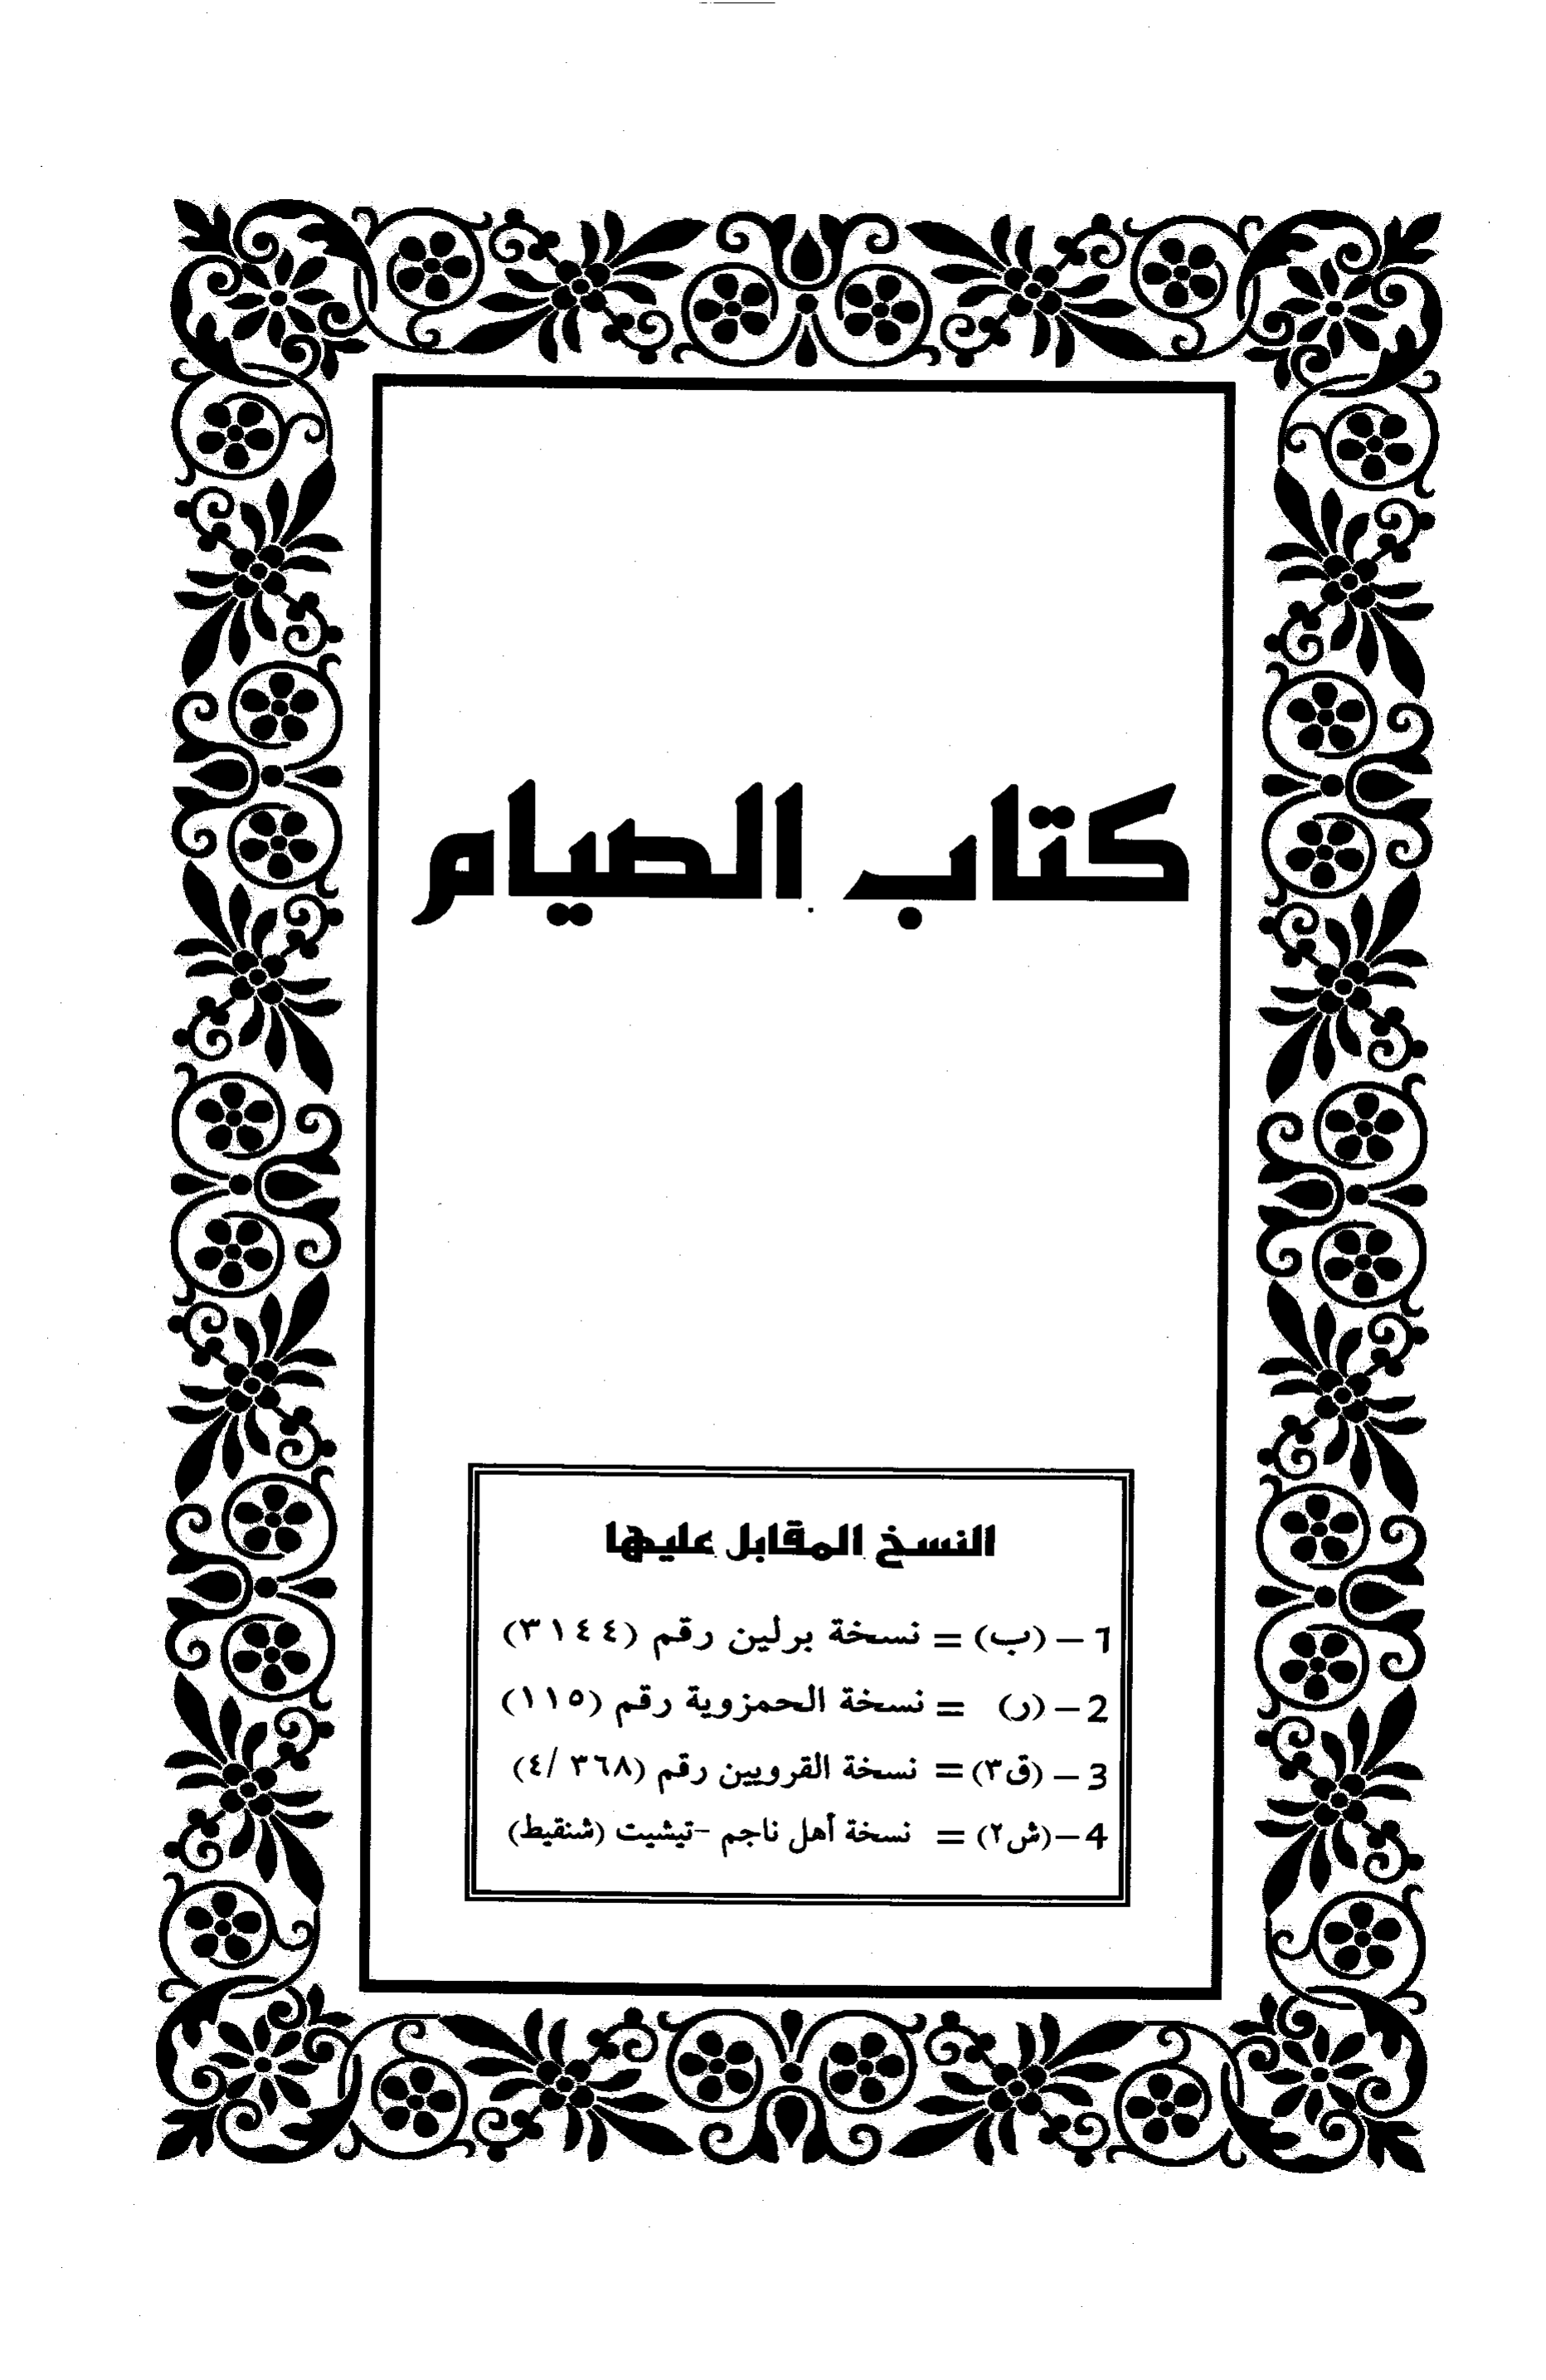 كتاب الصيام
النسخ المقابل عليها
1- (ب) = نسخة برلين رقم (٣١٤٤)
2- (ر) = نسخة الحمزوية رقم (١١٥)
3- (ق٣) = نسخة القرويين رقم (٣٦٨ /٤)
4-(ش٢) = نسخة أهل ناجم -تيشيت (شنقيط)